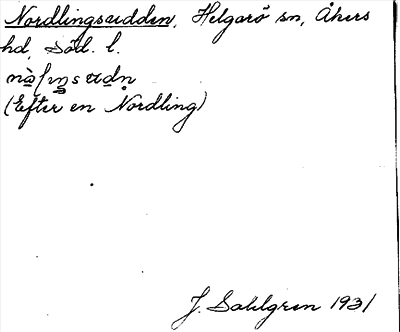 Nordlingsudden, Helgarö sn, Åkers
hd, Söd. l.
(Efter en Nordling)
J. Sahlgren 1931